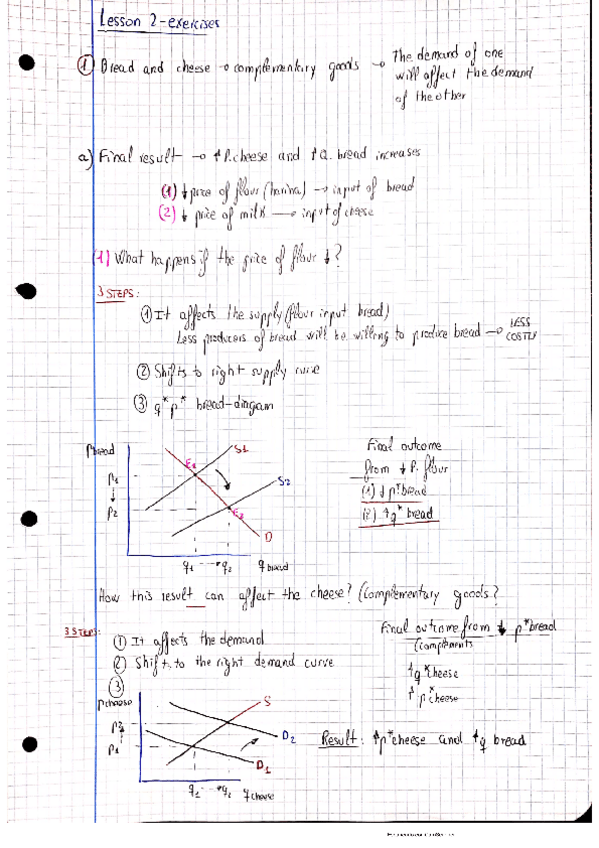 Lesson 2 - exercises
① Bread and cheese → complementary goods → The demand of one
will affect the demand
of the other
a) Final result → ↑ P. cheese and ↑ Q. bread increases
(1) ↓ price of flour (harina) → input of bread
(2) ↓ price of milk → input of cheese
(1) What happens if the price of flour ↓?
3 STEPS:
① It affects the supply (flour input bread)
Less producers of bread will be willing to produce bread → LESS
COSTLY
② Shifts to right supply curve
③ q* p* bread-diagram
P bread
S1
E1
P1
S2
P2
E2
D
q1 → q2 q bread
Final outcome
from ↓ P. flour
(1) ↓ p* bread
(2) ↑ q* bread
How this result can affect the cheese? (Complementary goods?
3 STEPS:
① It affects the demand
② Shift to the right demand curve
③
Final outcome from ↓ p* bread
(complements
↑ q* cheese
↑ p* cheese
P cheese
S
P2
D2
P1
D1
q1 → q2 q cheese
Result: ↑ p* cheese and ↑ q bread